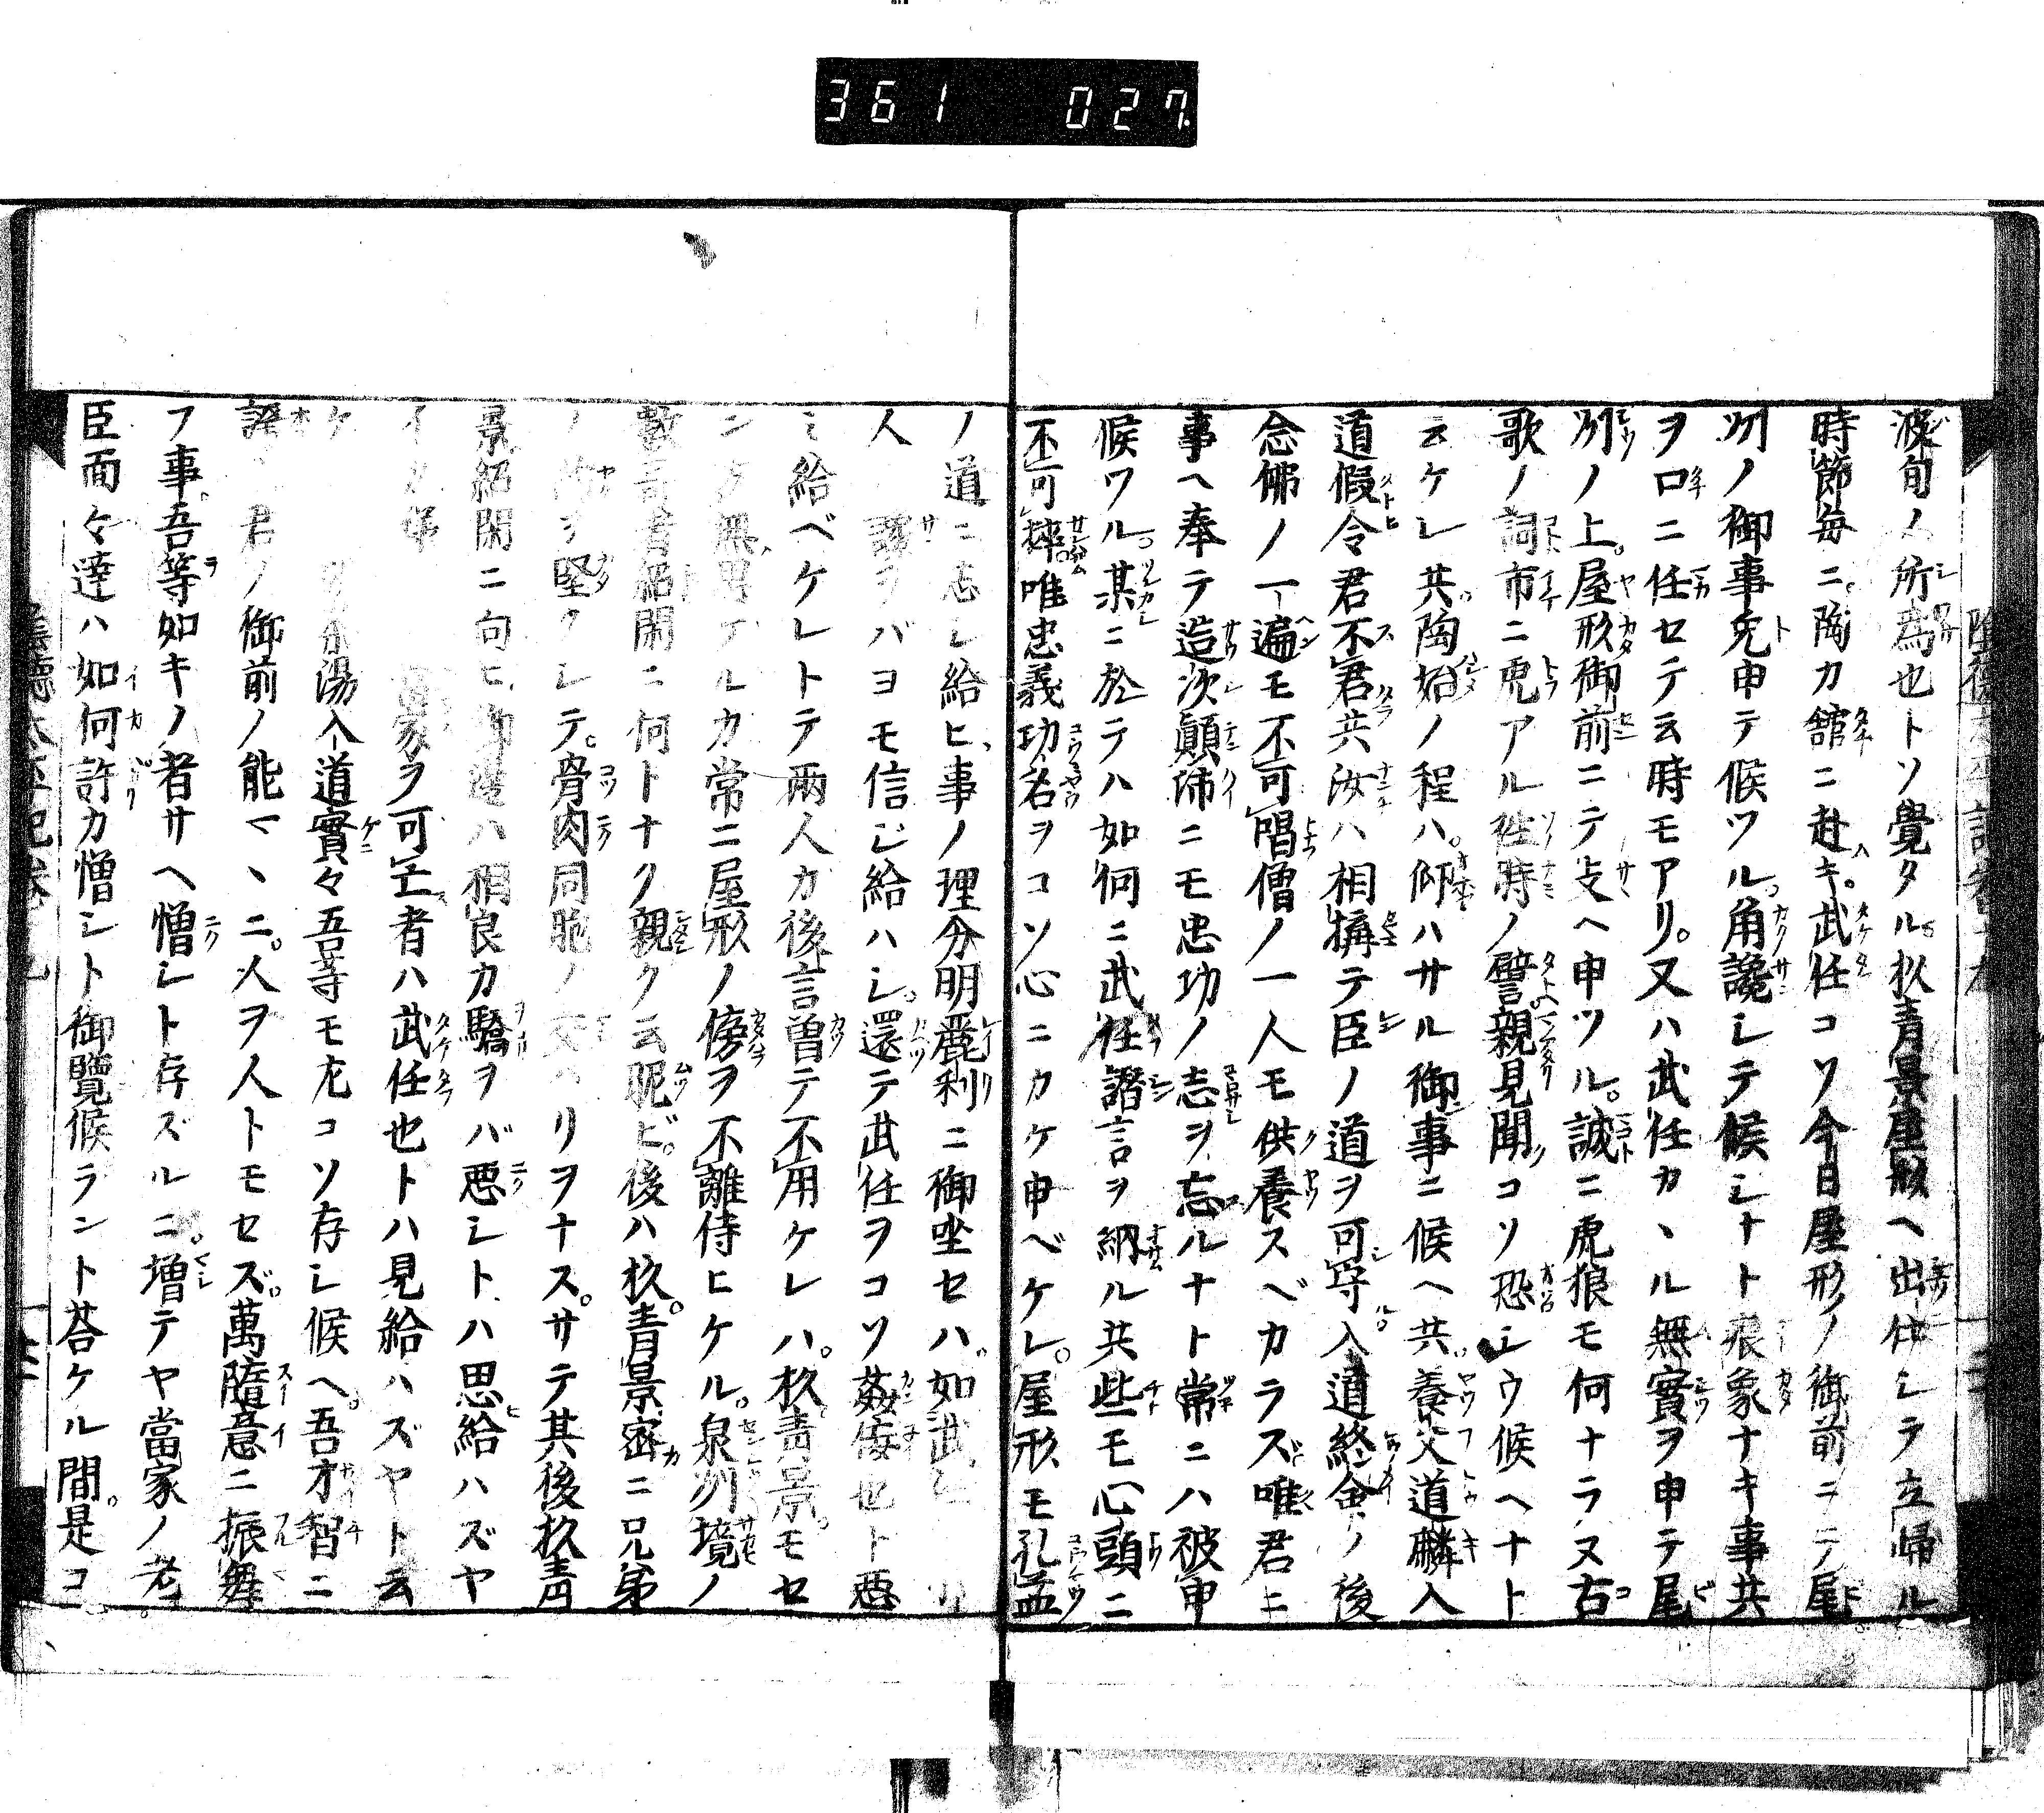 361 027
波旬ノ所爲也トソ覺タル杦青景屋形ヘ出仕シテ立歸ル
時節毎ニ。陶カ舘ニ赴キ。武任コソ今日屋形ノ御前ニテ尾
州ノ御事兎申テ候ツル。角讒シテ候シナト痕象ナキ事共
ヲ口ニ任セテ云時モアリ。又ハ武任カヽル無實ヲ申テ尾
州ノ上。屋形御前ニテ攴ヘ申ツル。誠ニ虎狼モ何ナラヌ古
歌ノ詞市ニ虎アル徃時ノ譬親見聞コソ恐シウ候ヘナト
云ケレ共陶始ノ程ハ。仰ハサル御事ニ候ヘ共。養父道麟入
道假令君不君共汝ハ相搆テ臣ノ道ヲ可守入道終命ノ後
念佛ノ一遍モ不可唱僧ノ一人モ供養スベカラズ唯君ニ
事ヘ奉テ造次顛沛ニモ忠功ノ志ヲ忘ルナト常ニハ被申
候ツル。某ニ於テハ如何ニ武任譖言ヲ納ル共些モ心頭ニ
不可挿。唯忠義功名ヲコソ心ニカケ申ベケレ。屋形モ孔孟
ノ道ニ志シ給ヒ、事ノ理分明麗利ニ御坐セハ。如武任
人 讒ヲバヨモ信ジ給ハシ。還テ武任ヲコソ姦侫也ト惡
ミ給ベケレトテ兩人カ後言曽テ不用ケレハ。杦青景。モセ
ンカ無 ケルカ常ニ屋形ノ傍ヲ不離侍ヒケル。泉州境ノ
数寄者紹閑ニ何トナク親ク云昵ビ。後ハ杦。青景密ニ兄弟
ノ ヲ堅クシテ。骨肉同胞ノ交ハリヲナス。サテ其後杦青
景紹閑ニ向ヒ 邊ハ相良カ驕ヲバ惡シトハ思給ハズヤ
家ヲ可亡者ハ武任也トハ見給ハズヤト云
ケ 湯入道實々吾等モ尤コソ存シ候ヘ。吾才智ニ
誇 君ノ御前ノ能マヽニ。人ヲ人トモセズ。萬隨意ニ振舞
フ事。吾等如キノ者サヘ憎シト存ズルニ。増テヤ當家ノ老。
臣面々達ハ如何許カ憎シト御覽候ラント荅ケル間。是コ